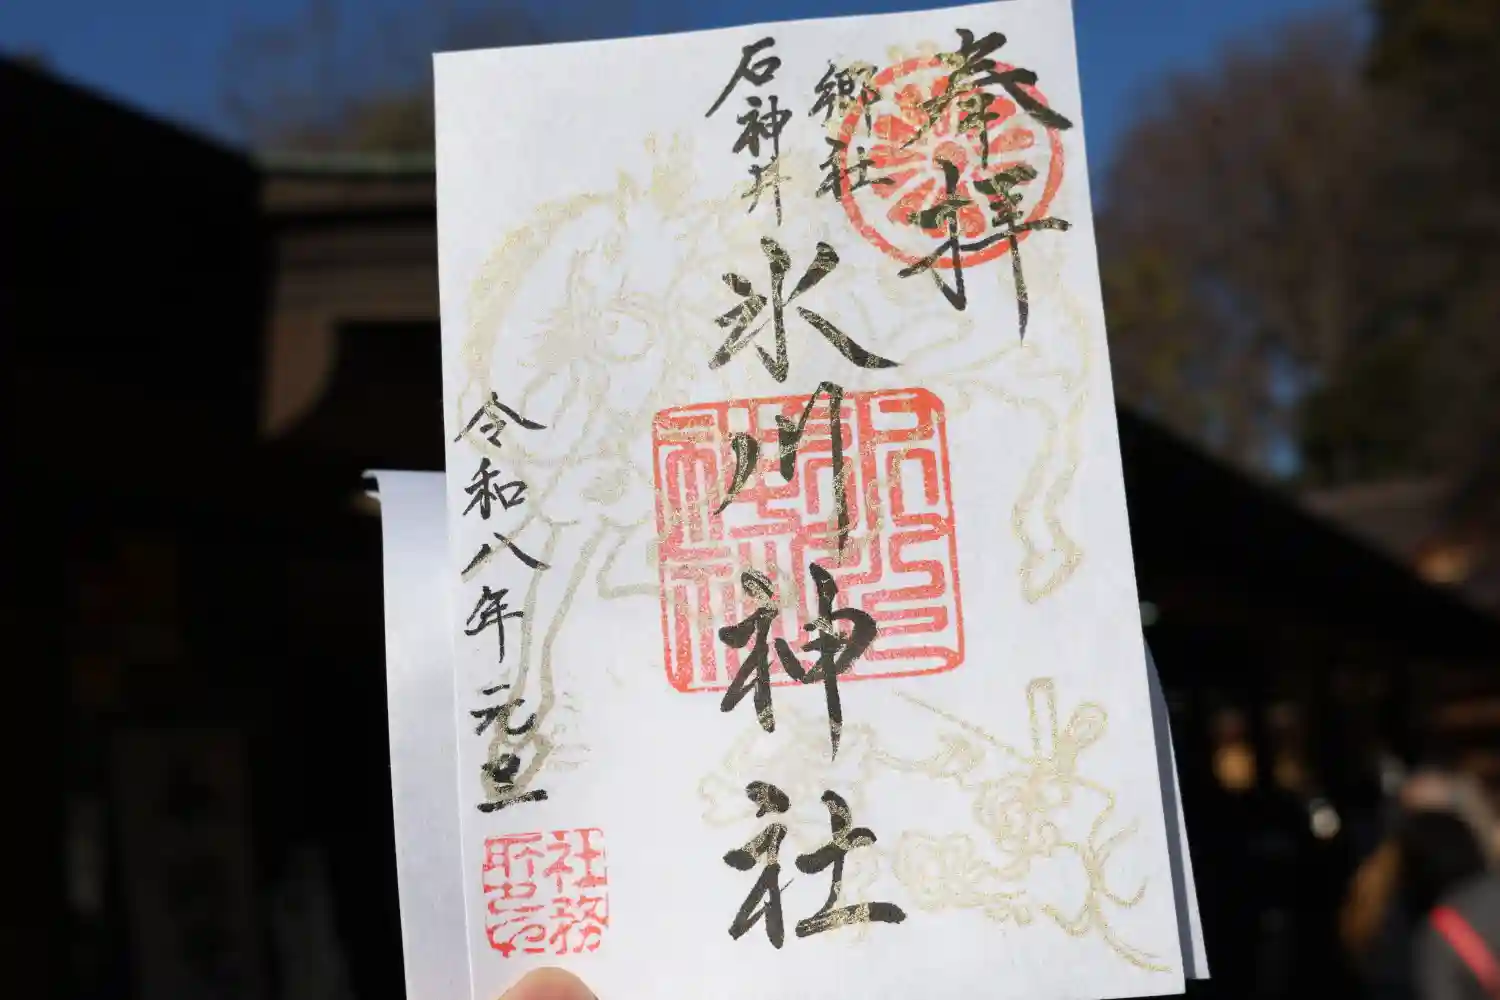 奉拝
郷社
石神井
氷川神社
令和八年元旦
社務
所之印